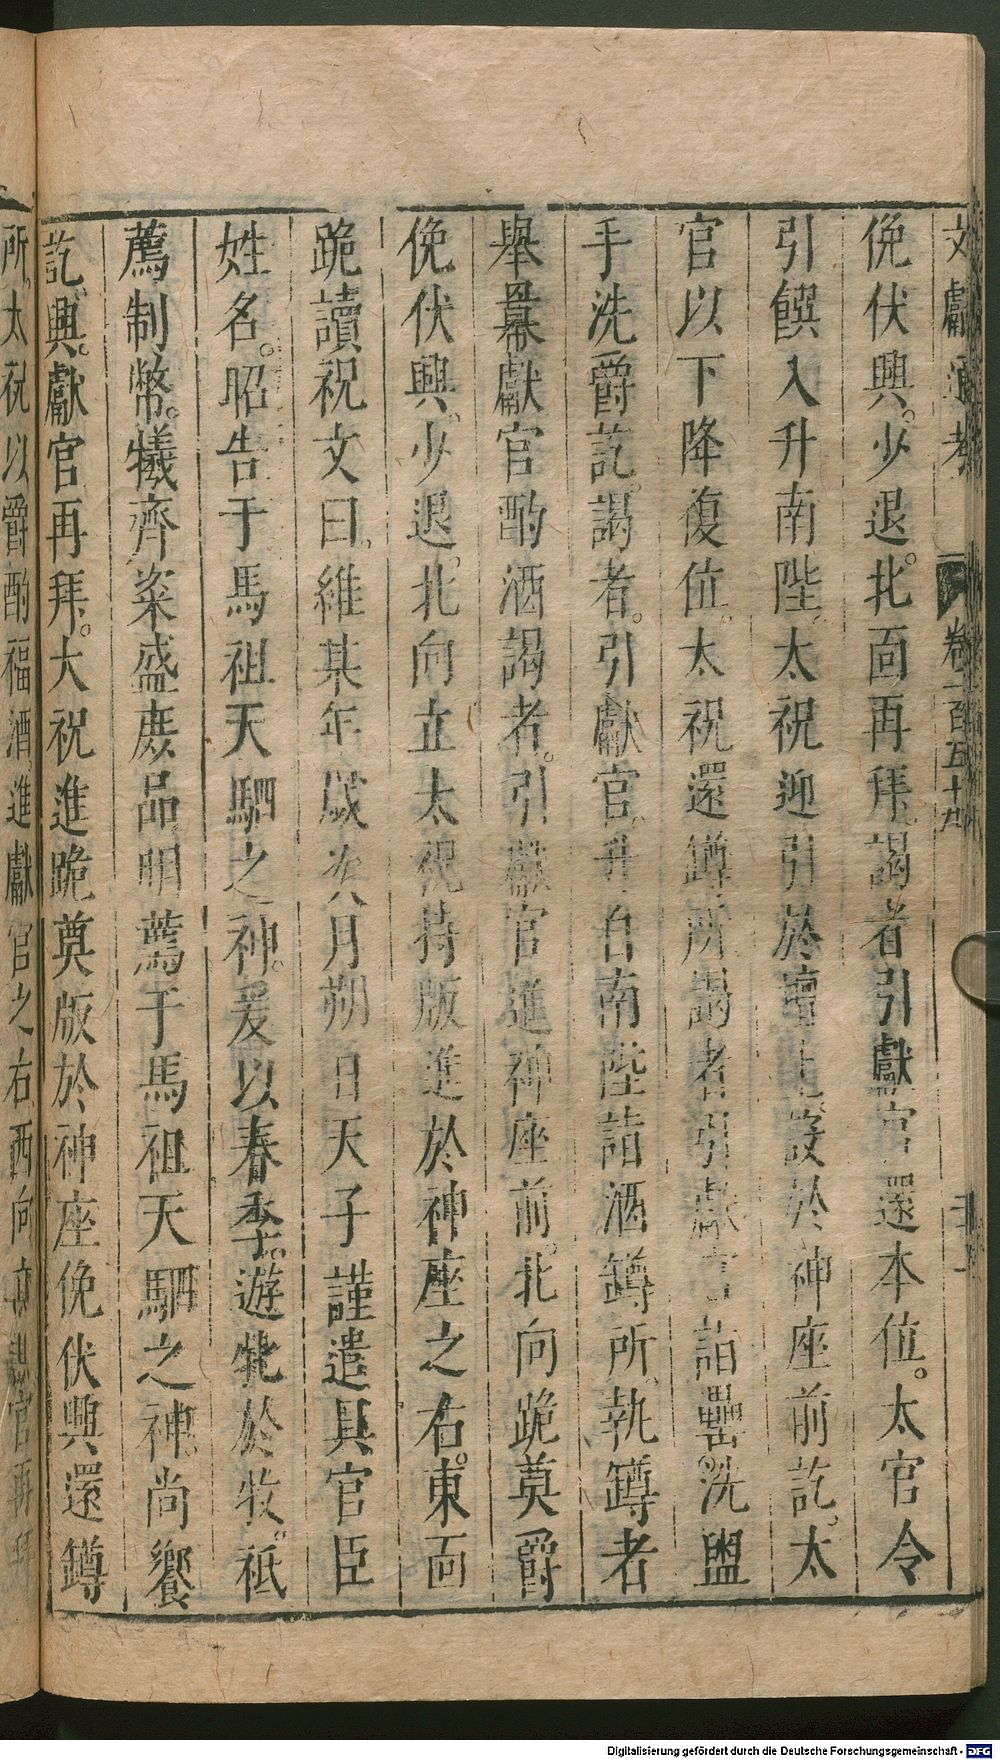 文獻通考　卷一百五十九
俛伏興。少退。北面再拜。謁者引獻官還本位。太官令
引饌入升南陛。太祝迎引於壇上設於神座前訖。太
官以下降復位。太祝還罇所謁者引獻官詣罍洗盥
手洗爵訖。謁者。引獻官升自南陛詣酒罇所執罇者
舉冪獻官酌酒謁者。引獻官進神座前。北向跪奠爵
俛伏興。少退。北向立太祝持版進於神座之右。東面
跪讀祝文曰。維某年歲次月朔日天子謹遣具官臣
姓名。昭告于馬祖天駟之神。爰以春季。遊牝於牧。祗
薦制幣。犧齊粢盛庶品明薦于馬祖天駟之神。尚饗
訖興。獻官再拜。太祝進跪奠版於神座俛伏興還罇
所。太祝以爵酌福酒進獻官之右西向立獻官再拜
Digitalisierung gefördert durch die Deutsche Forschungsgemeinschaft - DFG